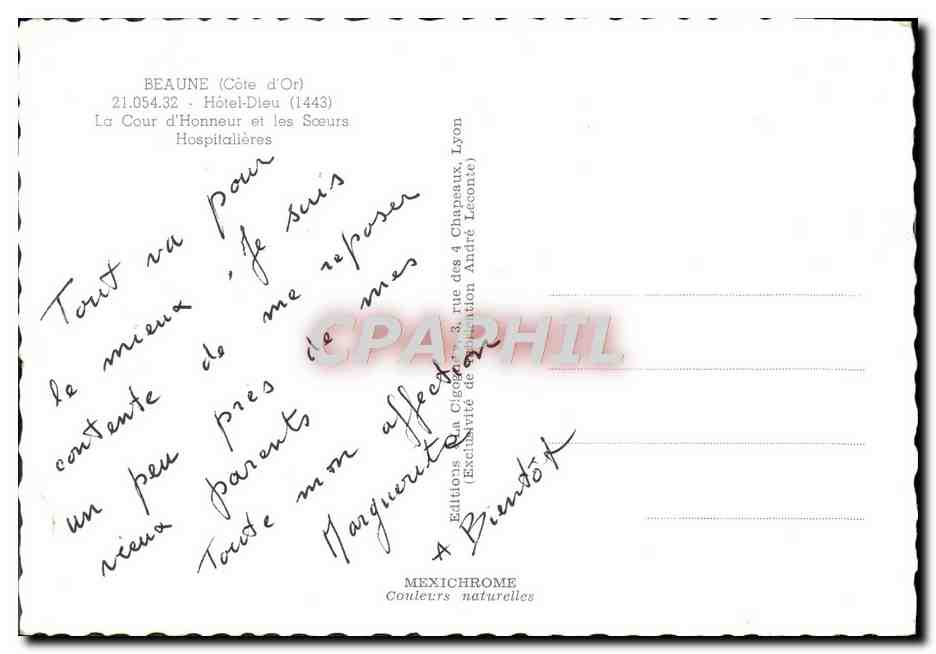 BEAUNE (Côte d'Or)
21.054.32 - Hôtel-Dieu (1443)
La Cour d'Honneur et les Sœurs
Hospitalières
Tout va pour
le mieux. Je suis
contente de me reposer
un peu près de mes
vieux parents
Toute mon affection
Marguerite
A Bientôt
Editions "La Cigogne", 3, rue des 4 Chapeaux, Lyon
(Exclusivité de fabrication André Leconte)
CPAPHIL
MEXICHROME
Couleurs naturelles